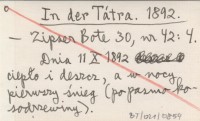 In der Tátra. 1892.
— Zipser Bote 30, nr 42: 4.
Dnia 11 X 1892
ciepło i deszcz, a w nocy
pierwszy śnieg (po pasmo ko-
sodrzewiny).